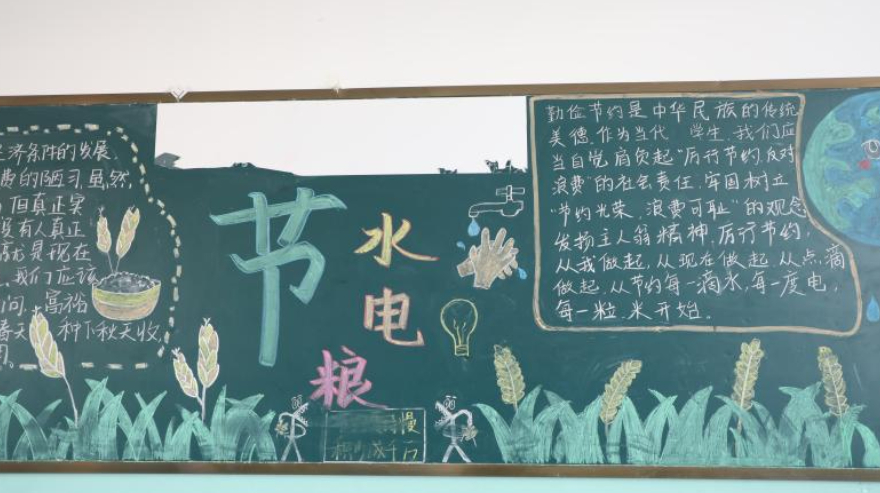 济条件的发展,
费的陋习,虽然,
但真正实
没有人真正
就是现在
我们应该
问,富裕
春天 种下秋天收
节
水
电
粮
慢
积少成千百
勤俭节约是中华民族的传统
美德,作为当代 学生,我们应
当自觉肩负起"厉行节约,反对
浪费"的社会责任,牢固树立
"节约光荣,浪费可耻"的观念
发扬主人翁精神,厉行节约,
从我做起,从现在做起,从点滴
做起,从节约每一滴水,每一度电,
每一粒米开始。